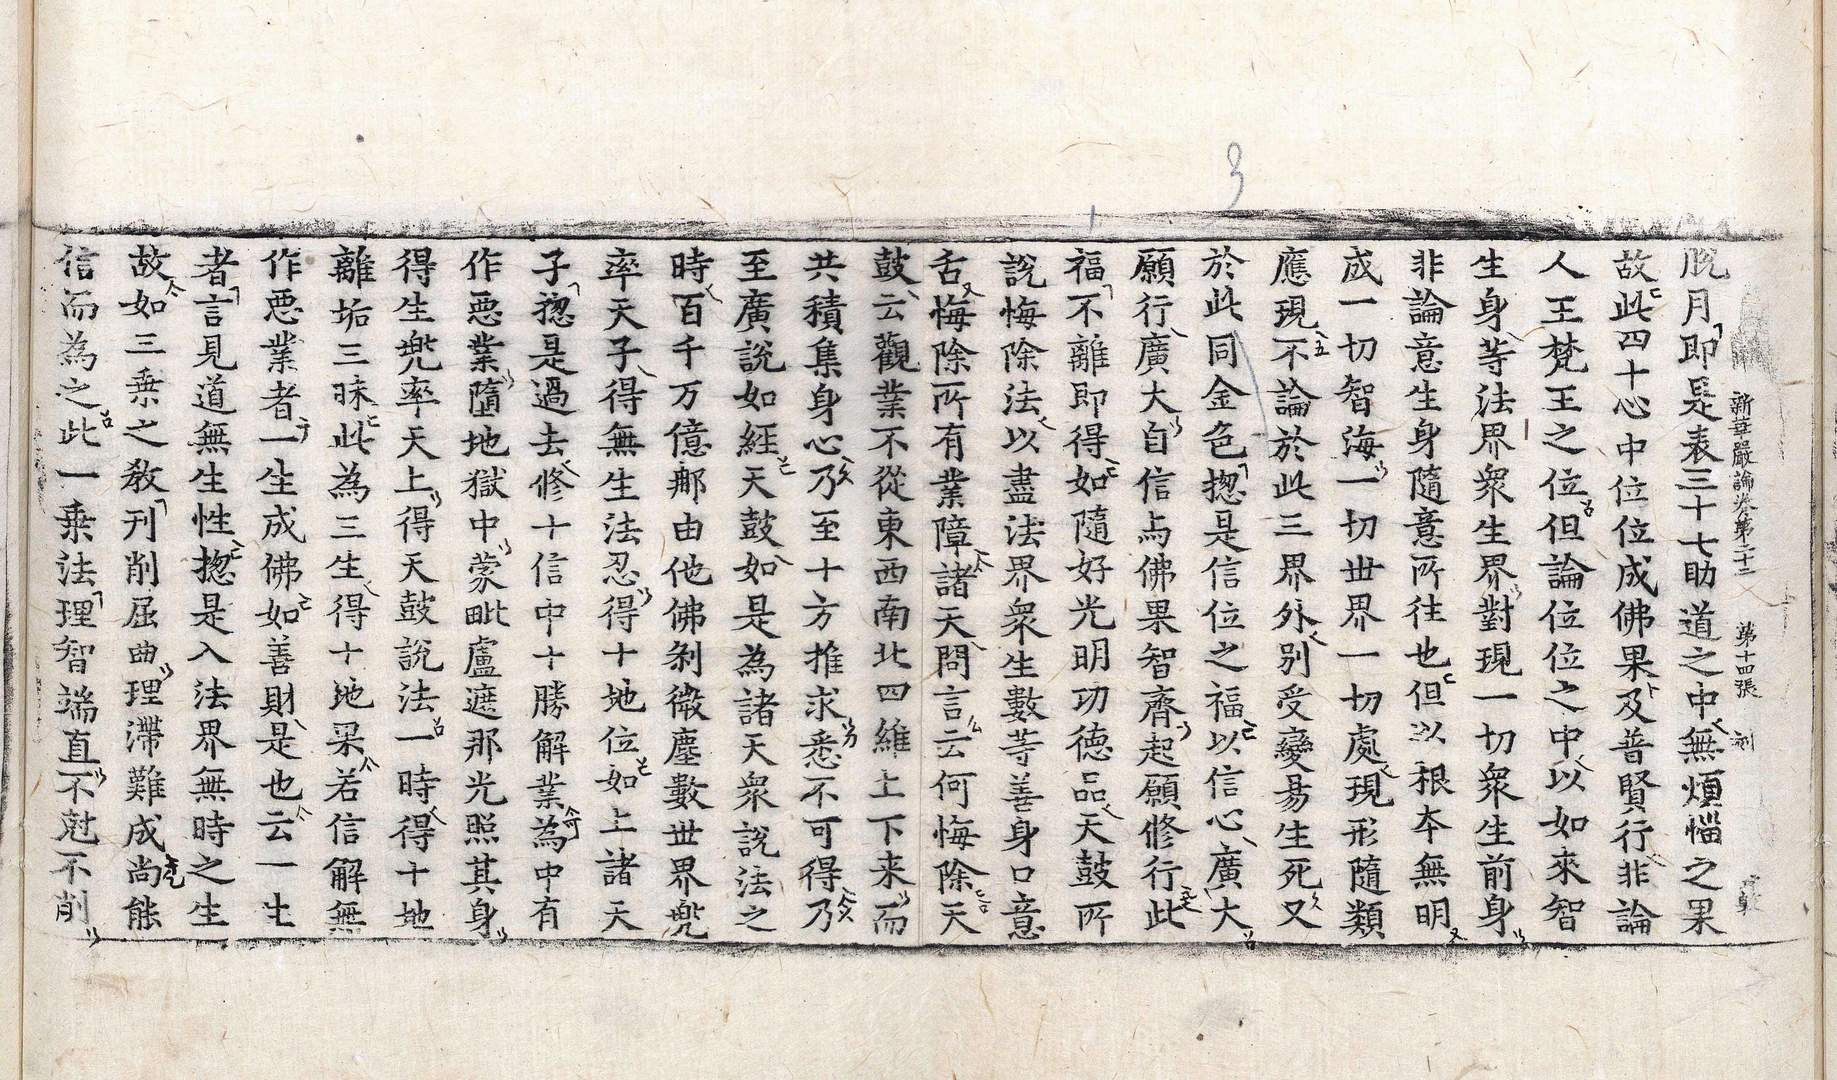 新華嚴論卷第二十二 第十四張
脫月即是表三十七助道之中無煩惱之果
故此四十心中位位成佛果及普賢行非論
人王梵王之位但論位位之中以如來智
生身等法界衆生界對現一切衆生前身
非論意生身隨意所往也但以根本無明
成一切智海一切世界一切處現形隨類
應現不論於此三界外別受變昜生死又
於此同金色揔是信位之福以信心廣大
願行廣大自信与佛果智齊起願修行此
福不離即得如隨好光明功德品天鼓所
說悔除法以盡法界衆生數等善身口意
舌悔除所有業障諸天問言云何悔除天
鼓云觀業不從東西南北四維上下来而
共積集身心乃至十方推求悉不可得乃
至廣說如經天鼓如是為諸天衆說法之
時百千万億那由他佛刹微塵數世界兜
率天子得無生法忍得十地位如上諸天
子揔是過去修十信中十勝解業為中有
作惡業墮地獄中蒙毗盧遮那光照其身
得生兜率天上得天鼓說法一時得十地
離垢三昧此為三生得十地果若信解無
作惡業者一生成佛如善財是也云一生
者言見道無生性揔是入法界無時之生
故如三乗之教刋削屈曲理滯難成尚能
信而為之此一乗法理智端直不尅不削